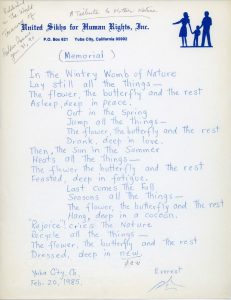 A Tribute to Mother Nature
United Sikhs for Human Rights, Inc.
P.O. Box 621 Yuba City, California 95992
(Memorial)
In the Wintry Womb of Nature
Lay still all the things—
The flower, the butterfly and the rest
Asleep, deep in peace.
Out in the Spring
Jump all the things—
The flower, the butterfly and the rest
Drank, deep in love.
Then, the Sun in the Summer
Heats all the things—
The flower the butterfly and the rest
Feasted, deep in fatigue.
Last comes the Fall
Seasons all the things—
The flower, the butterfly and the rest
Hang, deep in a cocoon.
"Rejoice"! cries The Nature
Recycle all the Things—
The flower, the butterfly and the rest
Dressed, deep in new.
Yuba City, CA Everest
Feb. 20, 1985.